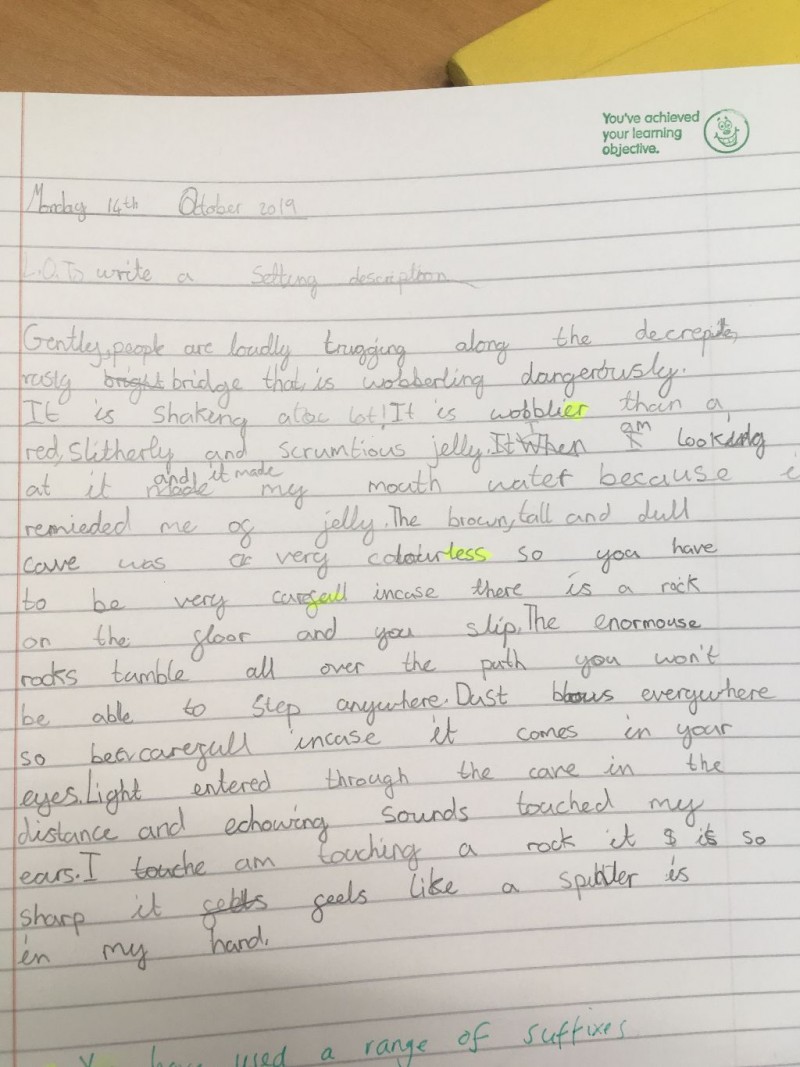 You've achieved
your learning
objective.
Monday 14th October 2019
L.O. To write a setting description
Gently, people are loudly trugging along the decrepit,
rusty bright bridge that is wobberling dangerously.
It is shaking a lot! It is wobblier than a
red, slitherly and scrumtious jelly. It When I am looking
at it made and it made my mouth water because i
remieded me of jelly. The brown, tall and dull
cave was a very colourless so you have
to be very carefull incase there is a rock
on the floor and you slip. The enormouse
rocks tumble all over the path you won't
be able to step anywhere. Dust blows everywhere
so be carefull incase it comes in your
eyes. Light entered through the cave in the
distance and echowing sounds touched my
ears. I touche am touching a rock it is so
sharp it feels like a splitter is
in my hand.
have used a range of suffixes